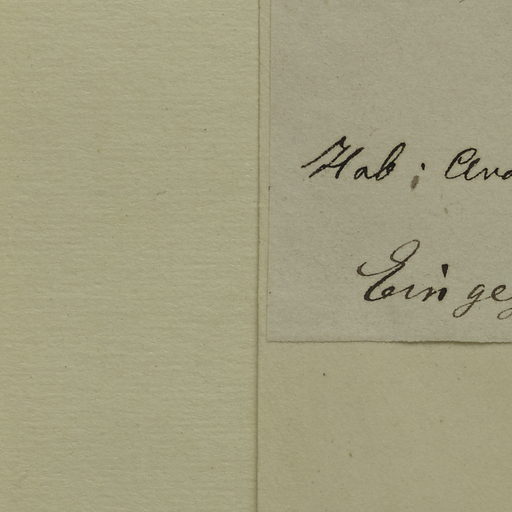 Hab: Ara
Einge